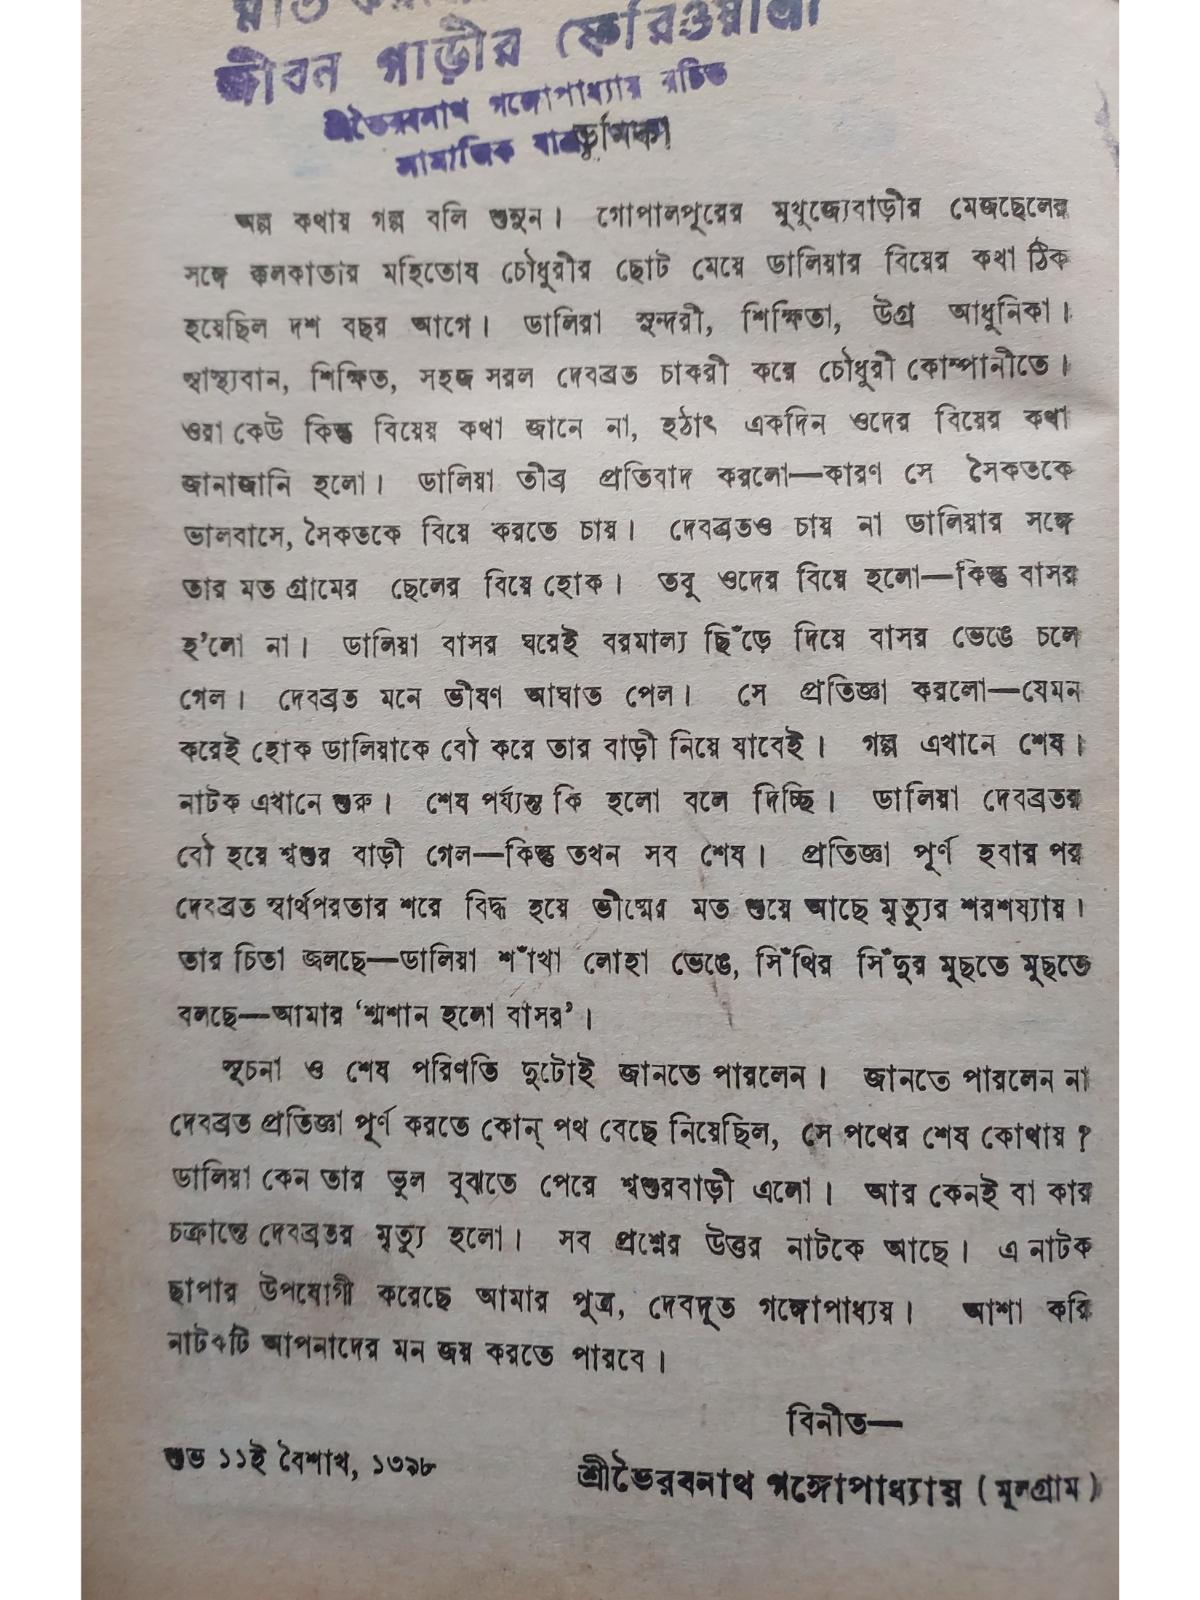 জীবন গাড়ীর ফেরিওয়ালা
শ্রীভৈরবনাথ গঙ্গোপাধ্যায় রচিত
সামাজিক
ভূমিকা
অল্প কথায় গল্প বলি শুনুন। গোপালপুরের মুখুজ্যেবাড়ীর মেজছেলের
সঙ্গে কলকাতার মহিতোষ চৌধুরীর ছোট মেয়ে ডালিয়ার বিয়ের কথা ঠিক
হয়েছিল দশ বছর আগে। ডালিয়া সুন্দরী, শিক্ষিতা, উগ্র আধুনিকা।
স্বাস্থ্যবান, শিক্ষিত, সহজ সরল দেবব্রত চাকরী করে চৌধুরী কোম্পানীতে।
ওরা কেউ কিন্তু বিয়ের কথা জানে না, হঠাৎ একদিন ওদের বিয়ের কথা
জানাজানি হলো। ডালিয়া তীব্র প্রতিবাদ করলো—কারণ সে সৈকতকে
ভালবাসে, সৈকতকে বিয়ে করতে চায়। দেবব্রতও চায় না ডালিয়ার সঙ্গে
তার মত গ্রামের ছেলের বিয়ে হোক। তবু ওদের বিয়ে হলো—কিন্তু বাসর
হ'লো না। ডালিয়া বাসর ঘরেই বরমাল্য ছিঁড়ে দিয়ে বাসর ভেঙে চলে
গেল। দেবব্রত মনে ভীষণ আঘাত পেল। সে প্রতিজ্ঞা করলো—যেমন
করেই হোক ডালিয়াকে বৌ করে তার বাড়ী নিয়ে যাবেই। গল্প এখানে শেষ।
নাটক এখানে শুরু। শেষ পর্য্যন্ত কি হলো বলে দিচ্ছি। ডালিয়া দেবব্রতর
বৌ হয়ে শ্বশুর বাড়ী গেল—কিন্তু তখন সব শেষ। প্রতিজ্ঞা পূর্ণ হবার পর
দেবব্রত স্বার্থপরতার শরে বিদ্ধ হয়ে ভীষ্মের মত শুয়ে আছে মৃত্যুর শরশয্যায়।
তার চিতা জলছে—ডালিয়া শাঁখা লোহা ভেঙে, সিঁথির সিঁদুর মুছতে মুছতে
বলছে—আমার ‘শ্মশান হলো বাসর’।
সূচনা ও শেষ পরিণতি দুটোই জানতে পারলেন। জানতে পারলেন না
দেবব্রত প্রতিজ্ঞা পূর্ণ করতে কোন্ পথ বেছে নিয়েছিল, সে পথের শেষ কোথায়?
ডালিয়া কেন তার ভুল বুঝতে পেরে শ্বশুরবাড়ী এলো। আর কেনই বা কার
চক্রান্তে দেবব্রতর মৃত্যু হলো। সব প্রশ্নের উত্তর নাটকে আছে। এ নাটক
ছাপার উপযোগী করেছে আমার পুত্র, দেবদূত গঙ্গোপাধ্যয়। আশা করি
নাটকটি আপনাদের মন জয় করতে পারবে।
বিনীত—
শুভ ১১ই বৈশাখ, ১৩৯৮
শ্রীভৈরবনাথ গঙ্গোপাধ্যায় (মূলগ্রাম)